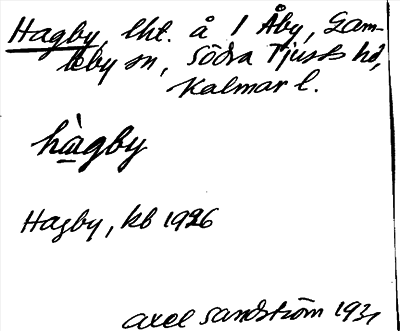 Hagby, lht. å 1 Åby, Gam-
leby sn, Södra Tjusts hd,
Kalmar l.
hàgby
Hagby, kb 1926
Axel Sandström 1931